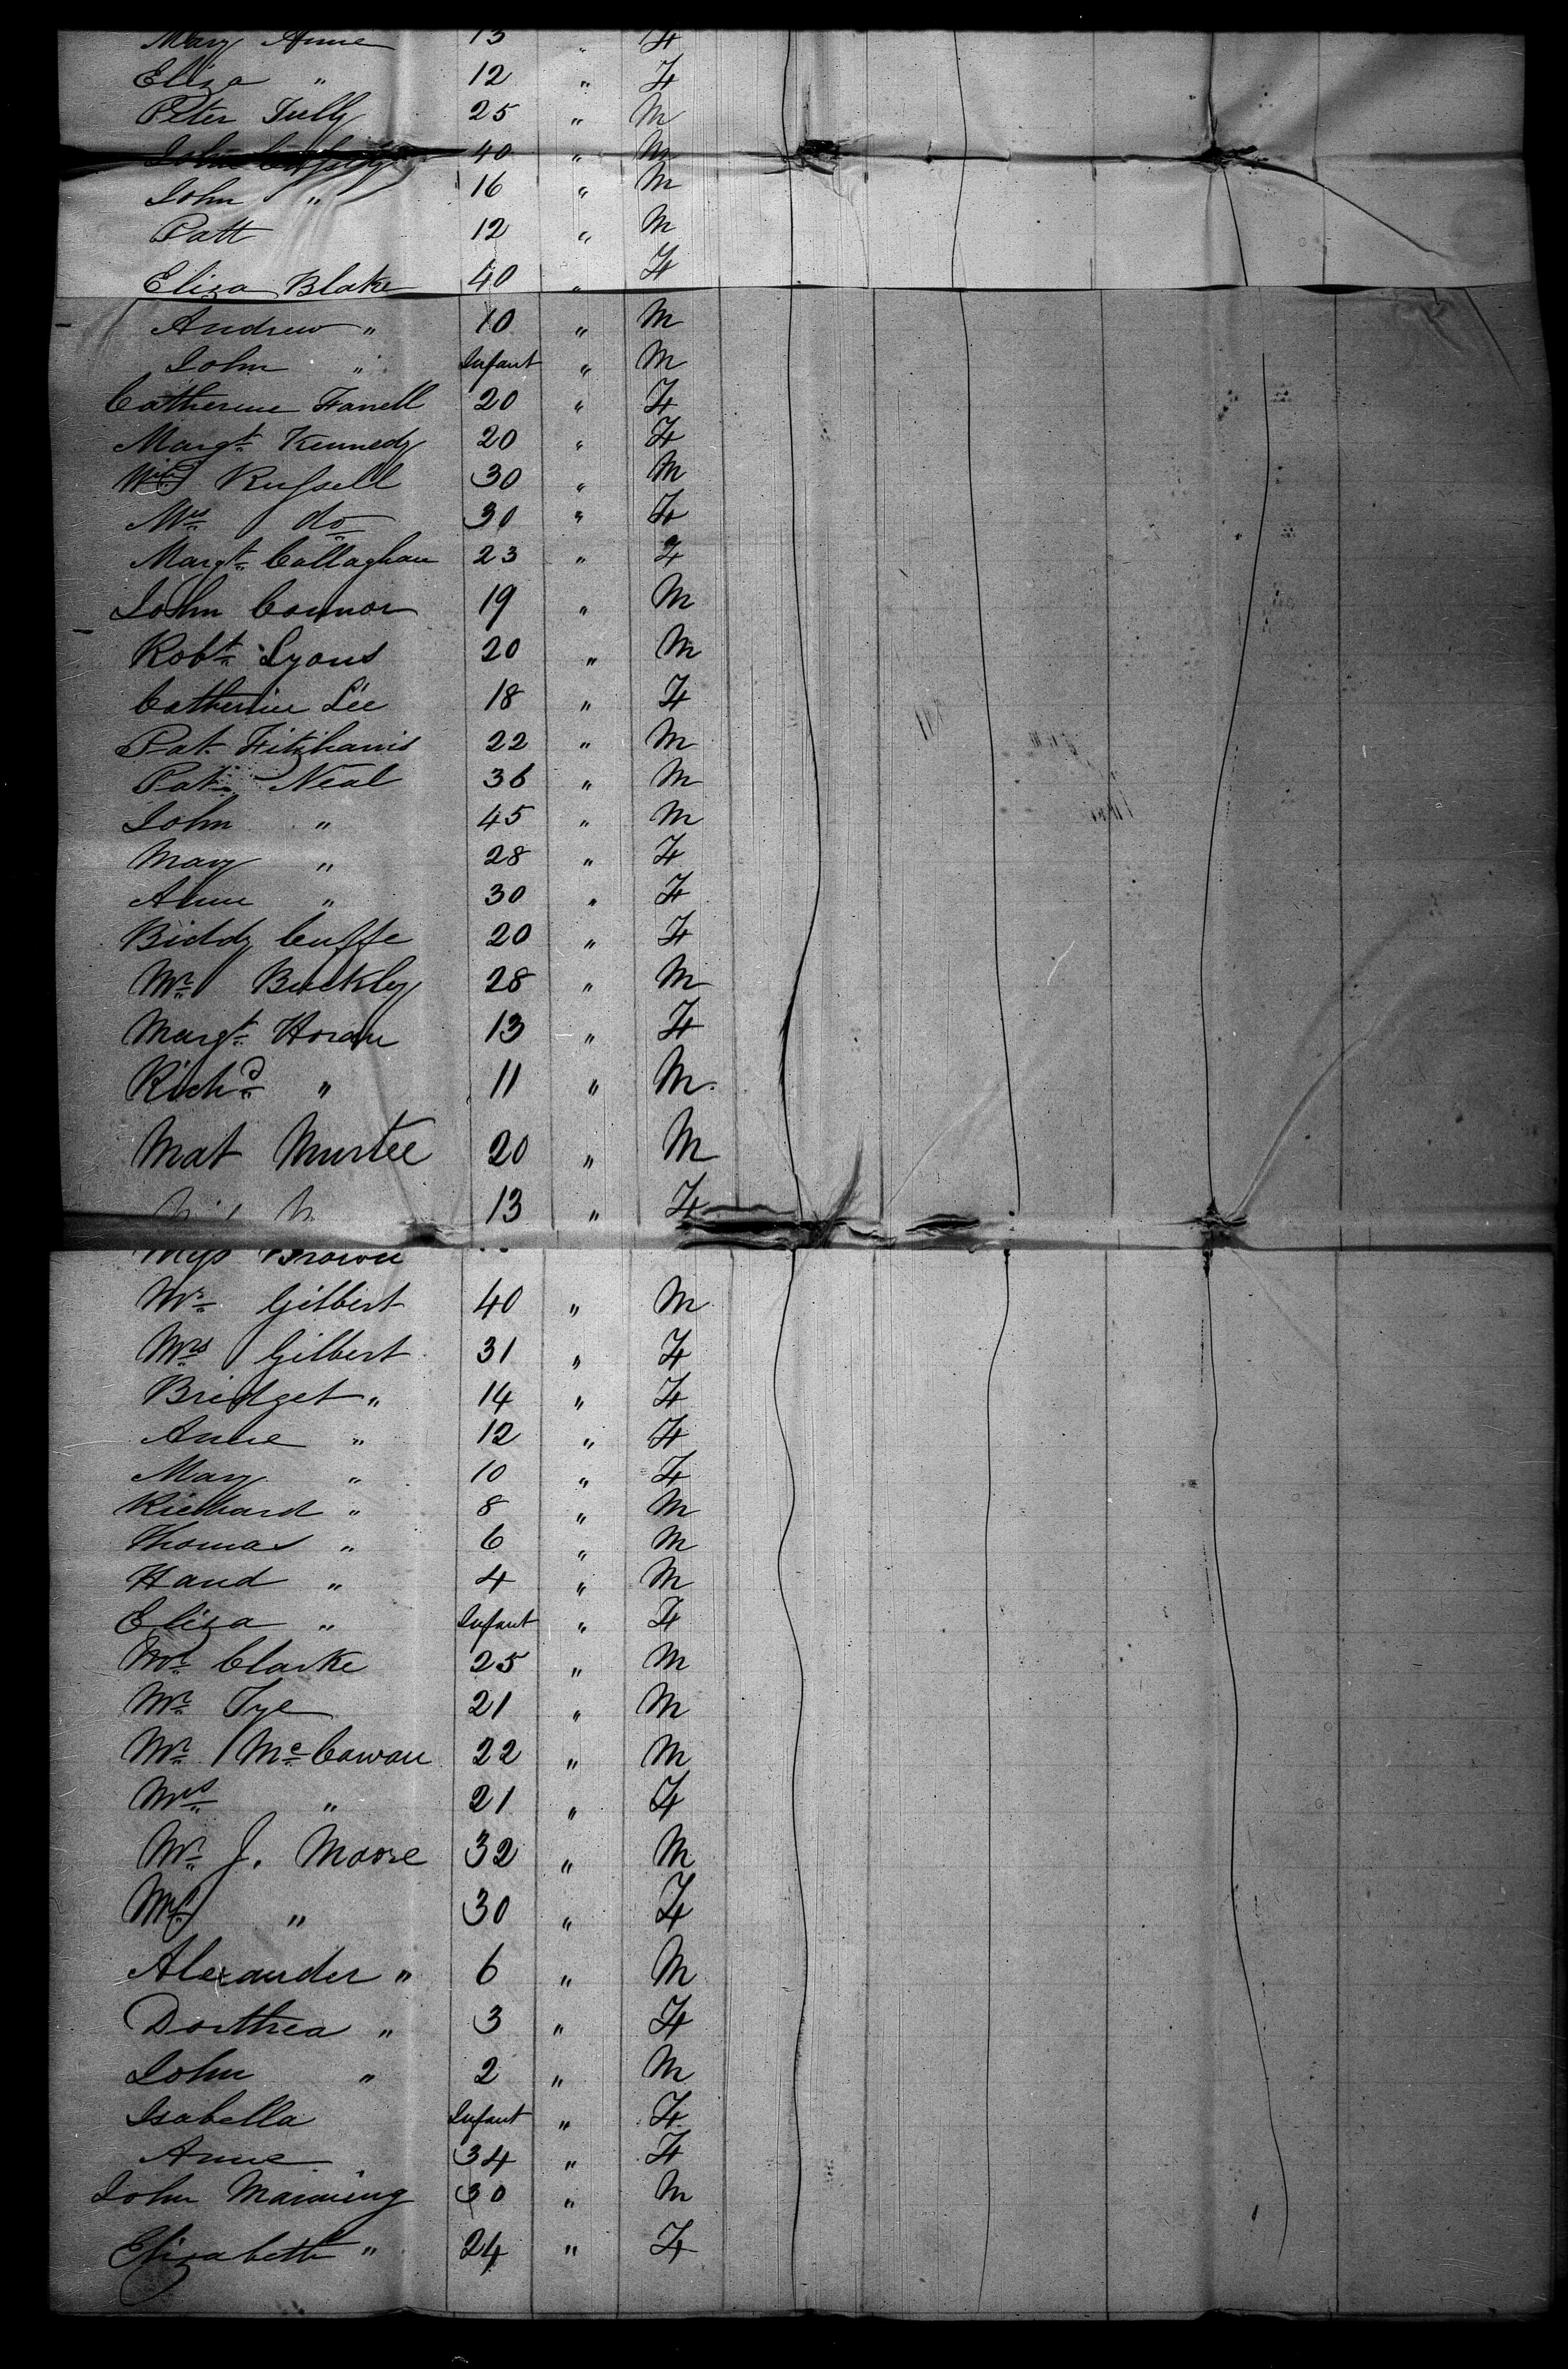 Mary Anne 13 " F
Eliza " 12 " F
Peter Tully 25 " M
John 40 " M
John " 16 " M
Patt 12 " M
Eliza Blake 40 " F
Andrew " 10 " M
John " Infant " M
Catherine Farrell 20 " F
Margt. Kennedy 20 " F
Russell 30 " M
Mrs do 30 " F
Margt. Callaghan 23 " F
John Connor 19 " M
Robt. Lyons 20 " M
Catherine Lee 18 " F
Pat. Fitzharris 22 " M
Pat. Neal 36 " M
John " 45 " M
Mary " 28 " F
Anne " 30 " F
Biddy Cuffe 20 " F
Mr. Buckley 28 " M
Margt. Horan 13 " F
Richd. " 11 " M
Mat Murtee 20 " M
13 " F
Miss Brown
Mr. Gilbert 40 " M
Mrs Gilbert 31 " F
Bridget " 14 " F
Anne " 12 " F
Mary " 10 " F
Richard " 8 " M
Thomas " 6 " M
Hand " 4 " M
Eliza " Infant " F
Mr. Clarke 25 " M
Mr. Tye 21 " M
Mr. McCowan 22 " M
Mrs " 21 " F
Mr. J. Moore 32 " M
Mrs " 30 " F
Alexander " 6 " M
Dorthea " 3 " F
John " 2 " M
Isabella Infant " F
Anne 34 " F
John Manning 30 " M
Elizabeth " 24 " F